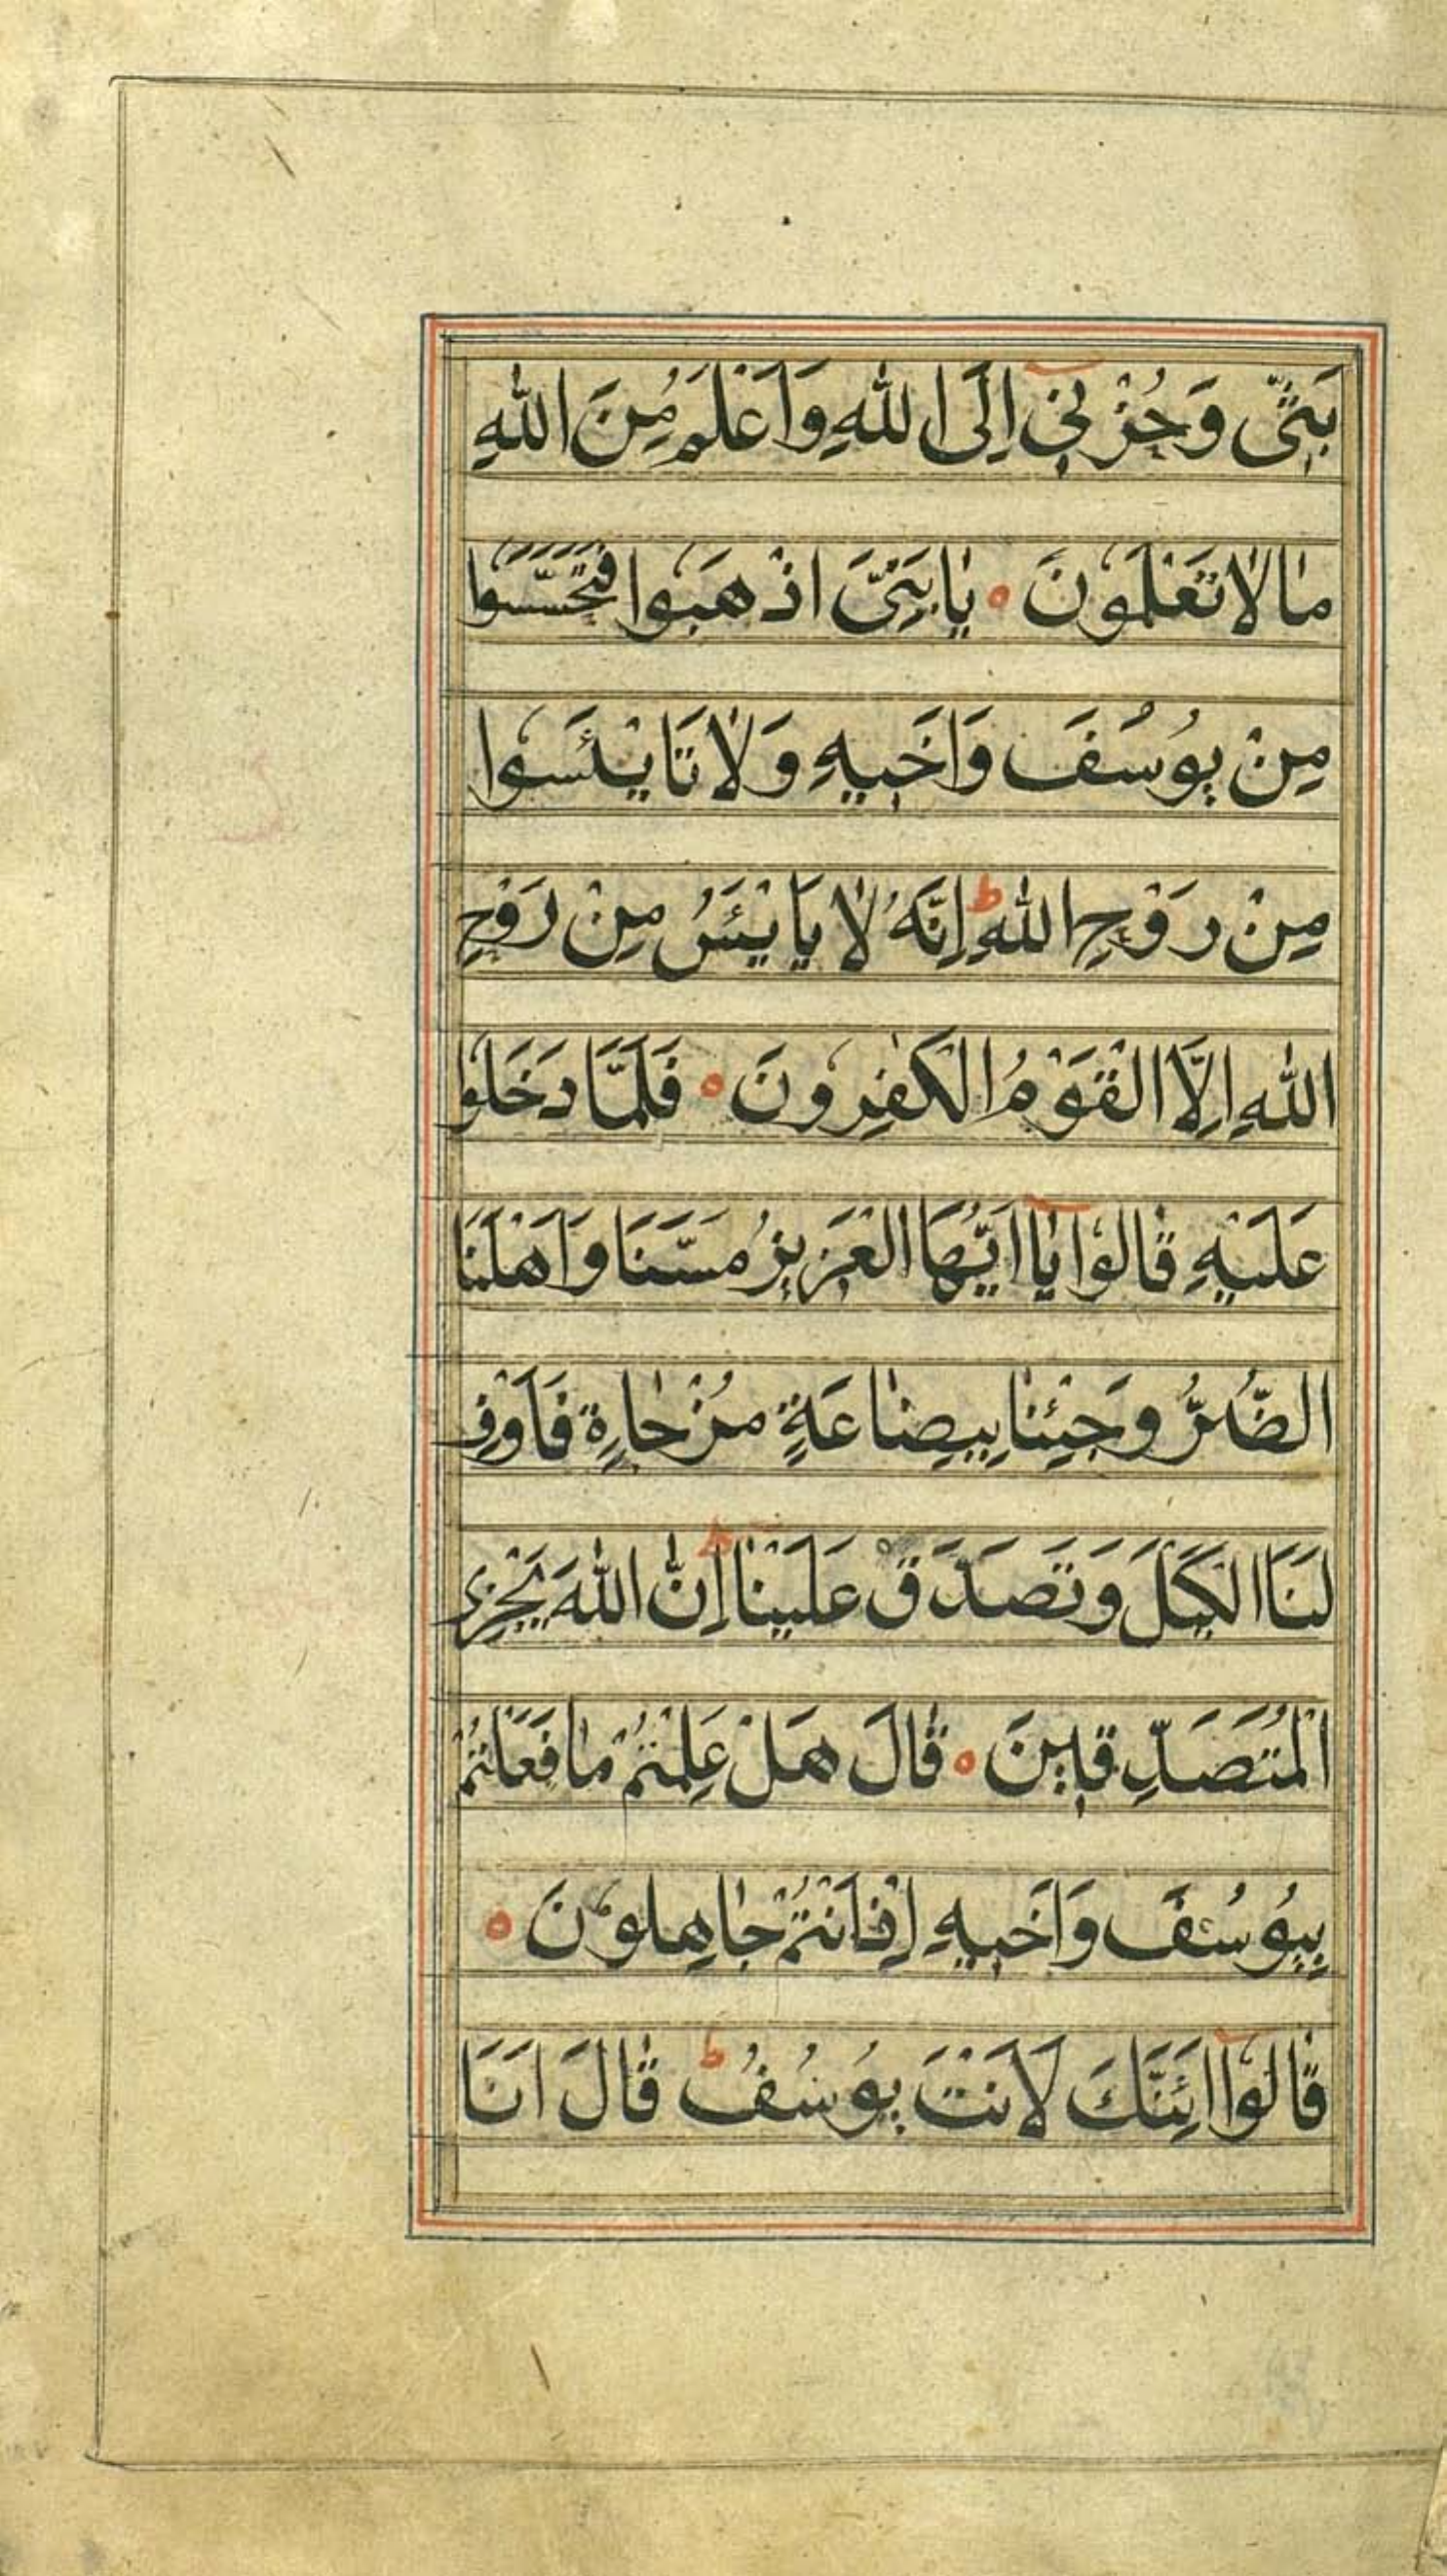 بَثّی وَحُزْنِی اِلَی اللّٰهِ وَاَعْلَمُ مِنَ اللّٰهِ
مٰا لٰا تَعْلَمُونَ ه یٰا بَنِیَّ اذْهَبُوا فَتَحَسَّسُوا
مِنْ یُوسُفَ وَاَخیهِ وَلٰا تَایْئَسُوا
مِنْ رَوْحِ اللّٰهِ ط اِنَّهُ لٰا یَایْئَسُ مِنْ رَوْحِ
اللّٰهِ اِلَّا الْقَوْمُ الْکٰفِرُونَ ه فَلَمَّا دَخَلُوا
عَلَیْهِ قٰالُوا یٰا اَیُّهَا الْعَزیزُ مَسَّنَا وَاَهْلَنَا
الضُّرُّ وَجِئْنٰا بِبِضٰاعَةٍ مُزْجٰاةٍ فَاَوْفِ
لَنَا الْکَیْلَ وَتَصَدَّقْ عَلَیْنٰا ط اِنَّ اللّٰهَ یَجْزِی
الْمُتَصَدِّقینَ ه قٰالَ هَلْ عَلِمْتُمْ مٰا فَعَلْتُمْ
بِیُوسُفَ وَاَخیهِ اِذْ اَنْتُمْ جٰاهِلُونَ ه
قٰالُوا اَئِنَّكَ لَاَنْتَ یُوسُفُ ط قٰالَ اَنَا